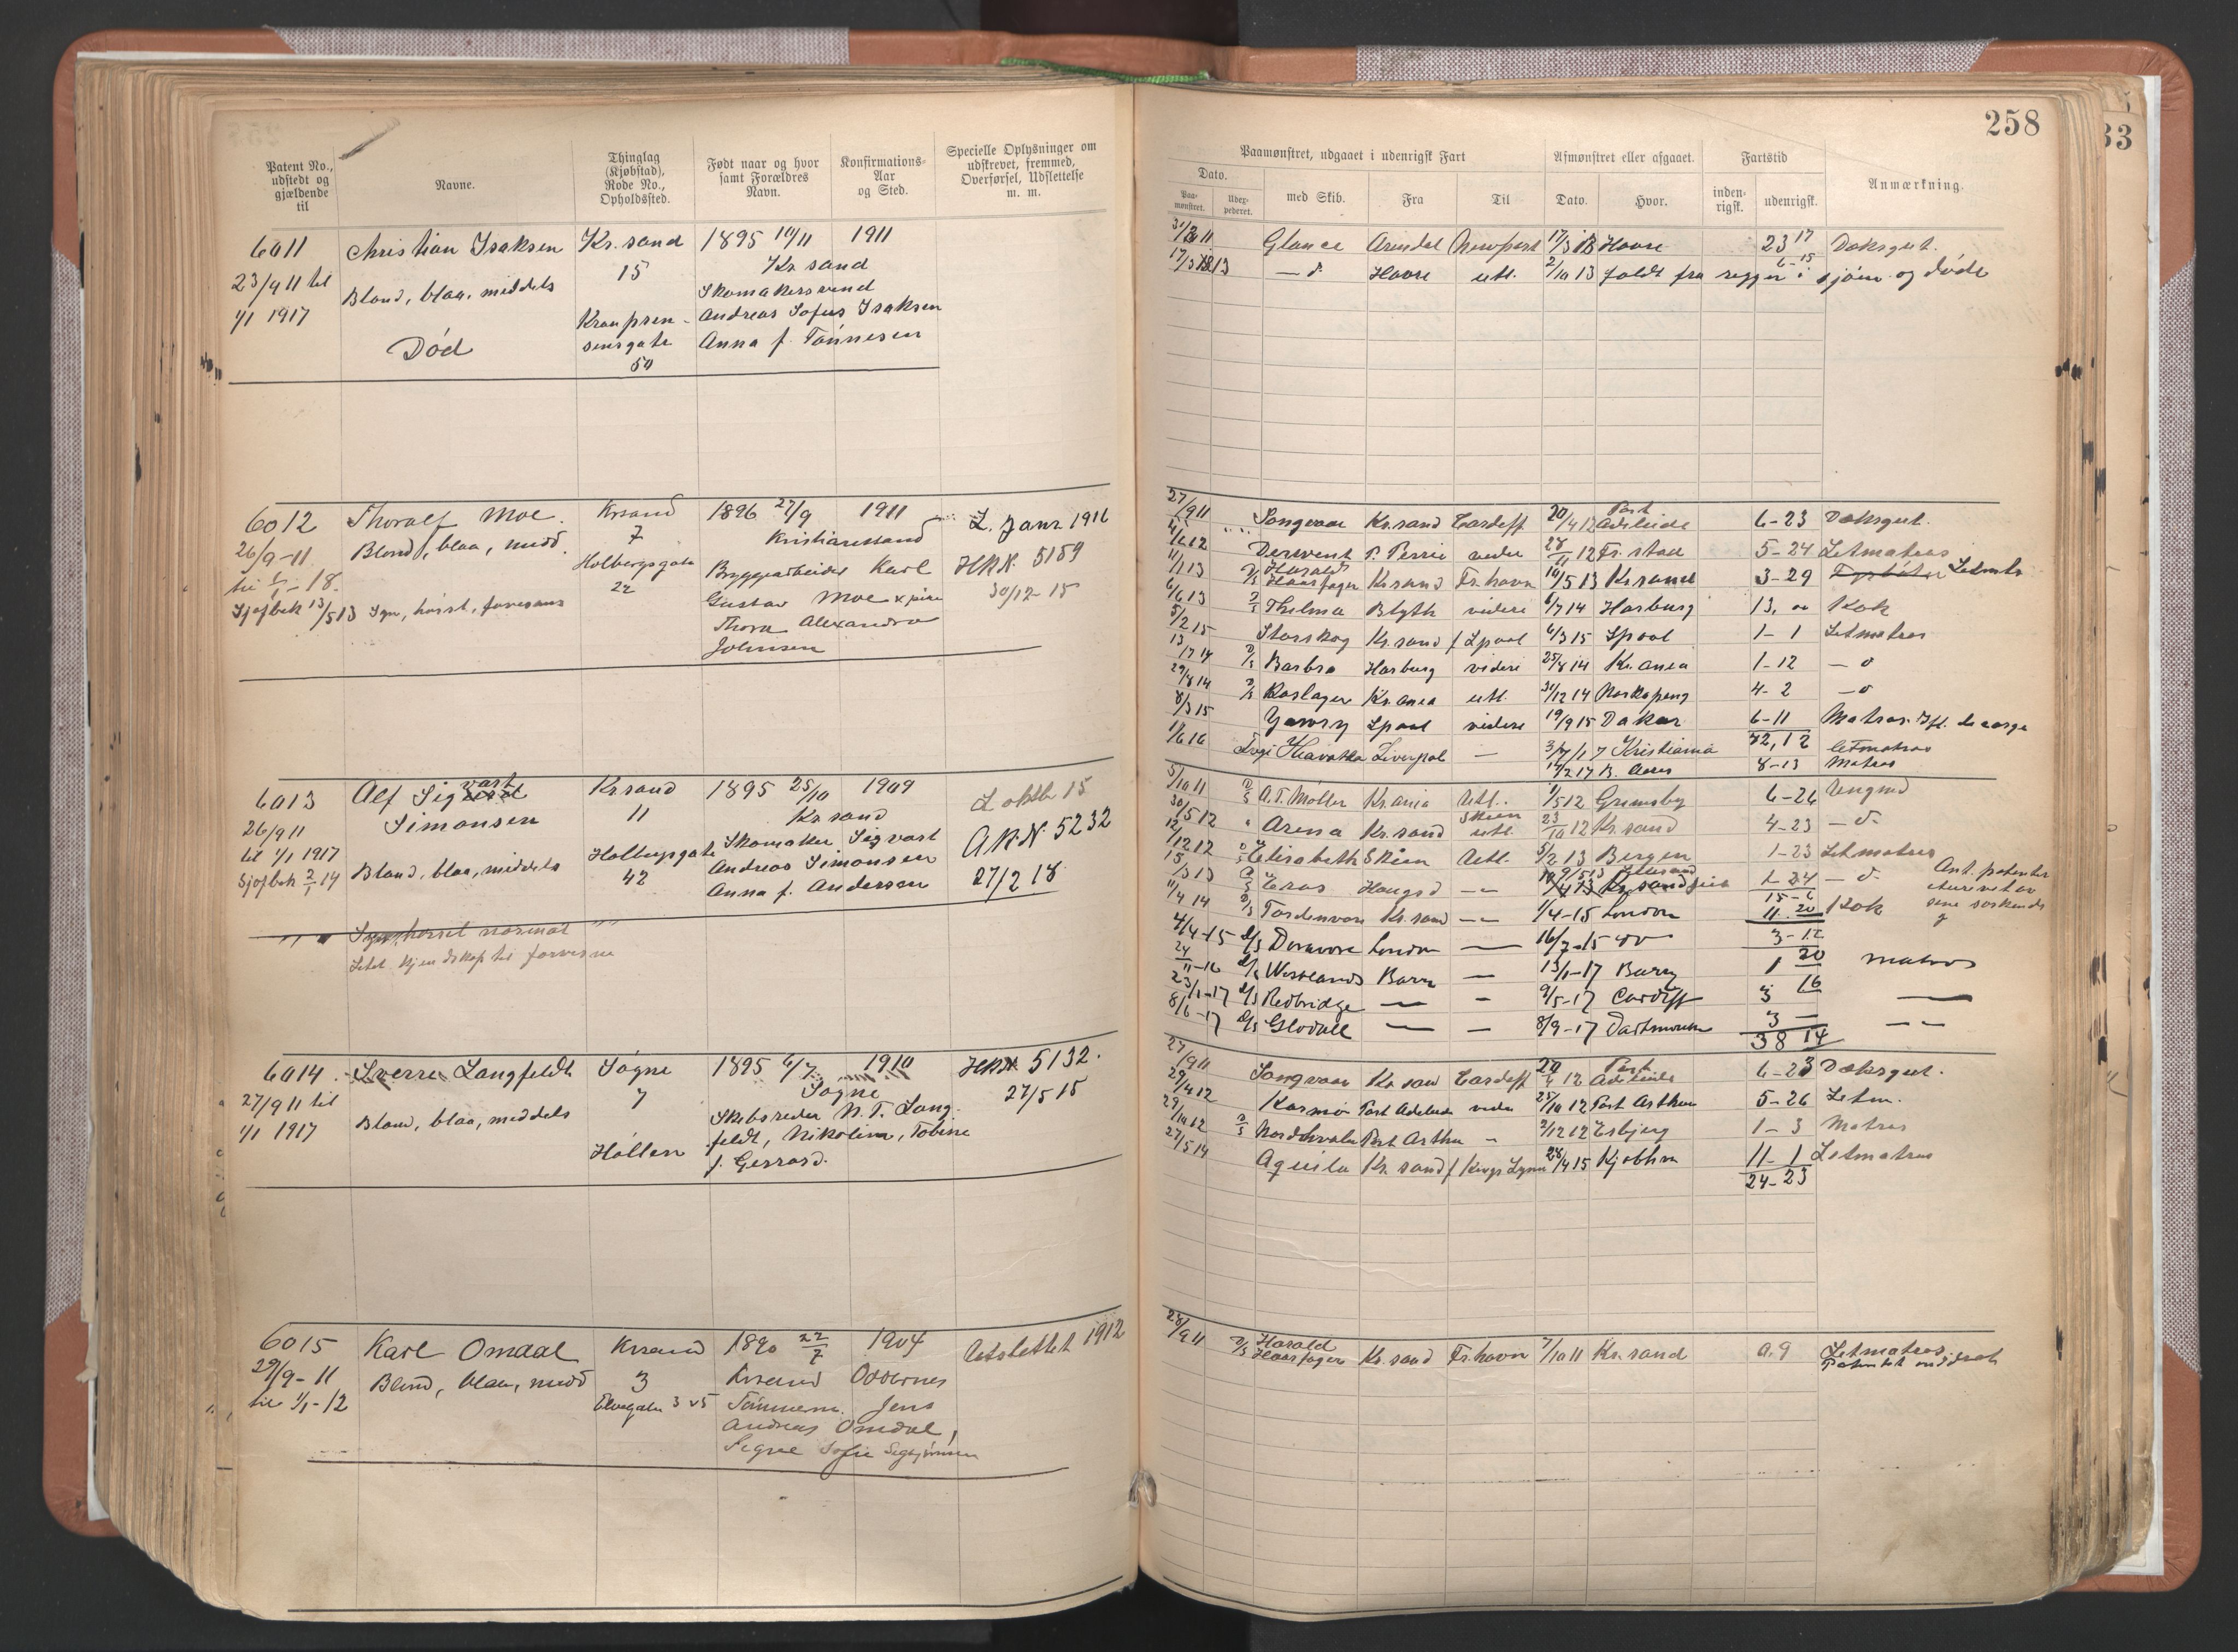 258
Patent No., udstedt og gjældende til
Navne.
Thinglag (Kjøbstad), Rode No., Opholdssted.
Født naar og hvor samt Forældres Navn.
Konfirmations-Aar og Sted.
Specielle Oplysninger om udskrevet, fremmed, Overførsel, Udslettelse m. m.
6011 Christian Isaksen Kr.sand 1895 10/11 1911
23/9 11 til 15 Kr.sand
Blond, blaa, middels Skomakersvend
1/1 1917 Andreas Sofus Isaksen
Død sensgate Anna f. Tønnesen
50
6012 Thoralf Moe. Krsand 1896 27/9 1911 L. Janr 1916
26/9-11 Blond, blaa, midd. 7 Kristianssand
til 1/1-18. Holbergsgate Bryggearbeider Karl HRN. 5189
22 Gustav Moe 30/12-15
Sjøfbok 13/5 13 Syn, hørsl, farvesans Thora Alexandra
Johnsen
6013 Alf Sigvart Krsand 1895 25/10 1909 L oktbr 15
26/9 11 Simonsen 11 Kr sand
til 1/1 1917 Holbergsgate Skomaker Sigvart A.R.N. 5232
Sjøfbok 2/1 14 Blond, blaa, middels 42 Andreas Simonsen
Anna f. Andersen 27/2 18
Syn, hørsel normal
6014 Sverre Langfeldt Søgne 1895 6/7 1910 HRN 5132.
27/9 11 til 7 Søgne 27/5 15
1/1 1917 Blond, blaa, middels Skibsreder N. T. Lang-
Høllen feldt, Nikoline, Tobine
f. Gerrard.
6015 Karl Omdal Krsand 1890 22/7 1904 Utslettet 1912
29/9-11 Blond, blaa, midd 3 Krsand Oddernes
til 1/1-12 Elvegaten 3 Tømmerm. Jens
Andreas Omdal,
Signe Sofie
Paamønstret, udgaaet i udenrigsk Fart
Afmønstret eller afgaaet.
Fartstid
Anmærkning.
Dato.
Paa-mønstret.
med Skib.
Fra
Til
Dato.
Hvor.
inden-rigsk.
udenrigsk.
Glance Arendal Newport 17/3 13 Havre 23 17 Dæksgut.
17/3 13 — d. Havre utl. 2/10 13 faldt fra riggen i sjøen og døde 6-15
27/9 11 Songvaar Kr.sand Cardiff 20/4 12 Port Adelaide 6-23 Dæksgut.
Derwent P. Pirrie videre 28/11 12 Fr.stad 5-24 Letmatros
1/1 13 D/S Harald Haarfager Kr.sand Fr.havn 10/5 13 Kr.sand 3-29 Letmtr
6/6 13 D/S Thelma Blyth videre 6/7 14 Harburg 13, 00 Kok
5/2 15 Storskog Kr.sand f Lpool 6/3 15 Lpool 1-1 Letmatros
13/7 14 D/S Barbro Harburg videre 25/8 14 Kr.ania 1-12 — d
29/8 14 D/S Roslagen Kr.ania utl. 31/12 14 Norkøping 4-2 — d
8/3 15 Lpool videre 19/9 15 Dakar 6-11 Matros
1/6 16 Liverpol — 3/7/17 Kristiania Letmatros
14/2 17 B. Aires 8-13 Matros
5/10 11 D/S A.P. Møller Kr.ania Utl. 1/5 12 Grimsby 6-26 Ungmd
30/5 12 Arena Kr.sand Skien utl. 23/10 12 Kr.sand 4-23 — d.
12/12 12 D/S Elisabeth Skien Utl. 5/2 13 Bergen 1-23 Letmatros
15/3 13 D/S Eros Haugsd — 1-24 — d. Ant. patenter
11/4 14 D/S Tordenvore Kr.sand — 1/4-15 London 11 20 Kok
4/4-15 D/S London — 16/7-15 3-12
24/11-16 D/S Westlands Barry — 13/1-17 Barry 1 20 Matros
23/1-17 D/S Redbridge — - 9/5-17 Cardiff 3 16 —
8/6-17 D/S — — 8/9-17 Dartmouth 3 —
38 14
27/9 11 Songvaar Kr.sand Cardiff 20/4 12 Port Adelaide 6-23 Dæksgut.
29/4 12 Karmø Port Adelaide videre 25/10 12 Port Arthur 5-26 Letm.
29/10 12 D/S Nordhvalen Port Arthur - 2/12 12 Esbjerg 1-3 Matros
27/5 14 Aquila Kr.sand f Kings Lynn 28/4 15 Kjøbhvn 11-1 Letmatros
24-23
28/9 11 D/S Harald Haarfager Kr.sand Fr.havn 7/10 11 Kr.sand 0.9 Letmatros